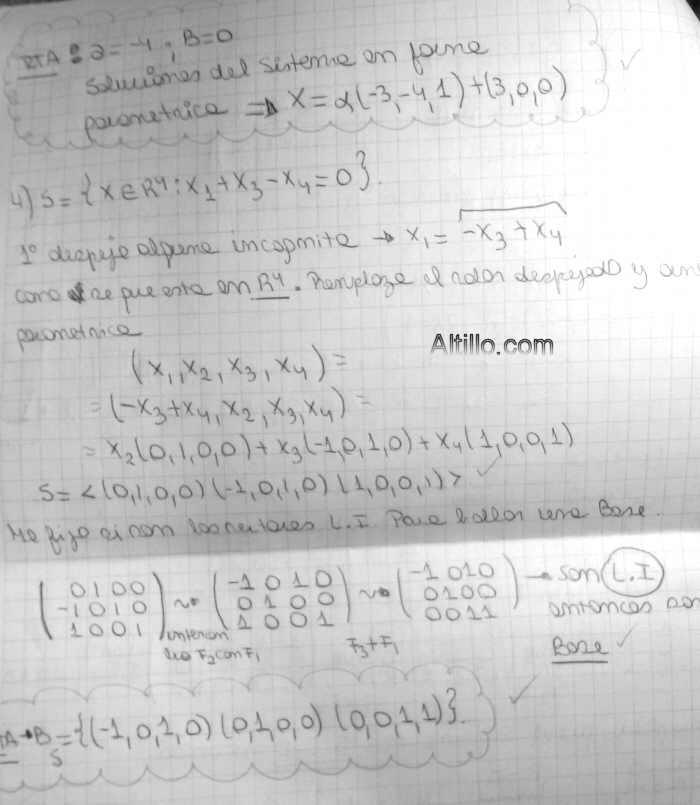 RTA: a = -4 ; B=0
Soluciones del sistema en forma
parametrica ⇒ X = α(-3,-4,1)+(3,0,0)
4) S = {X ∈ R4 : X1 + X3 - X4 = 0}.
1º despejo alguna incognita → X1 = -X3 + X4
como se que esta en R4. Remplazo el valor despejado y
parametrica
Altillo.com
(X1, X2, X3, X4) =
= (-X3+X4, X2, X3, X4) =
= X2(0,1,0,0) + X3(-1,0,1,0) + X4(1,0,0,1)
S = <(0,1,0,0) (-1,0,1,0) (1,0,0,1)>
Me fijo si son los vectores L.I. Para hallar una Base.
(0 1 0 0) ~ (-1 0 1 0) ~ (-1 0 1 0) → son L.I
(-1 0 1 0) (0 1 0 0) (0 1 0 0) entonces son
(1 0 0 1) (1 0 0 1) (0 0 1 1) Base
F2 con F1 F3+F1
RTA → BS = {(-1,0,1,0) (0,1,0,0) (0,0,1,1)}.